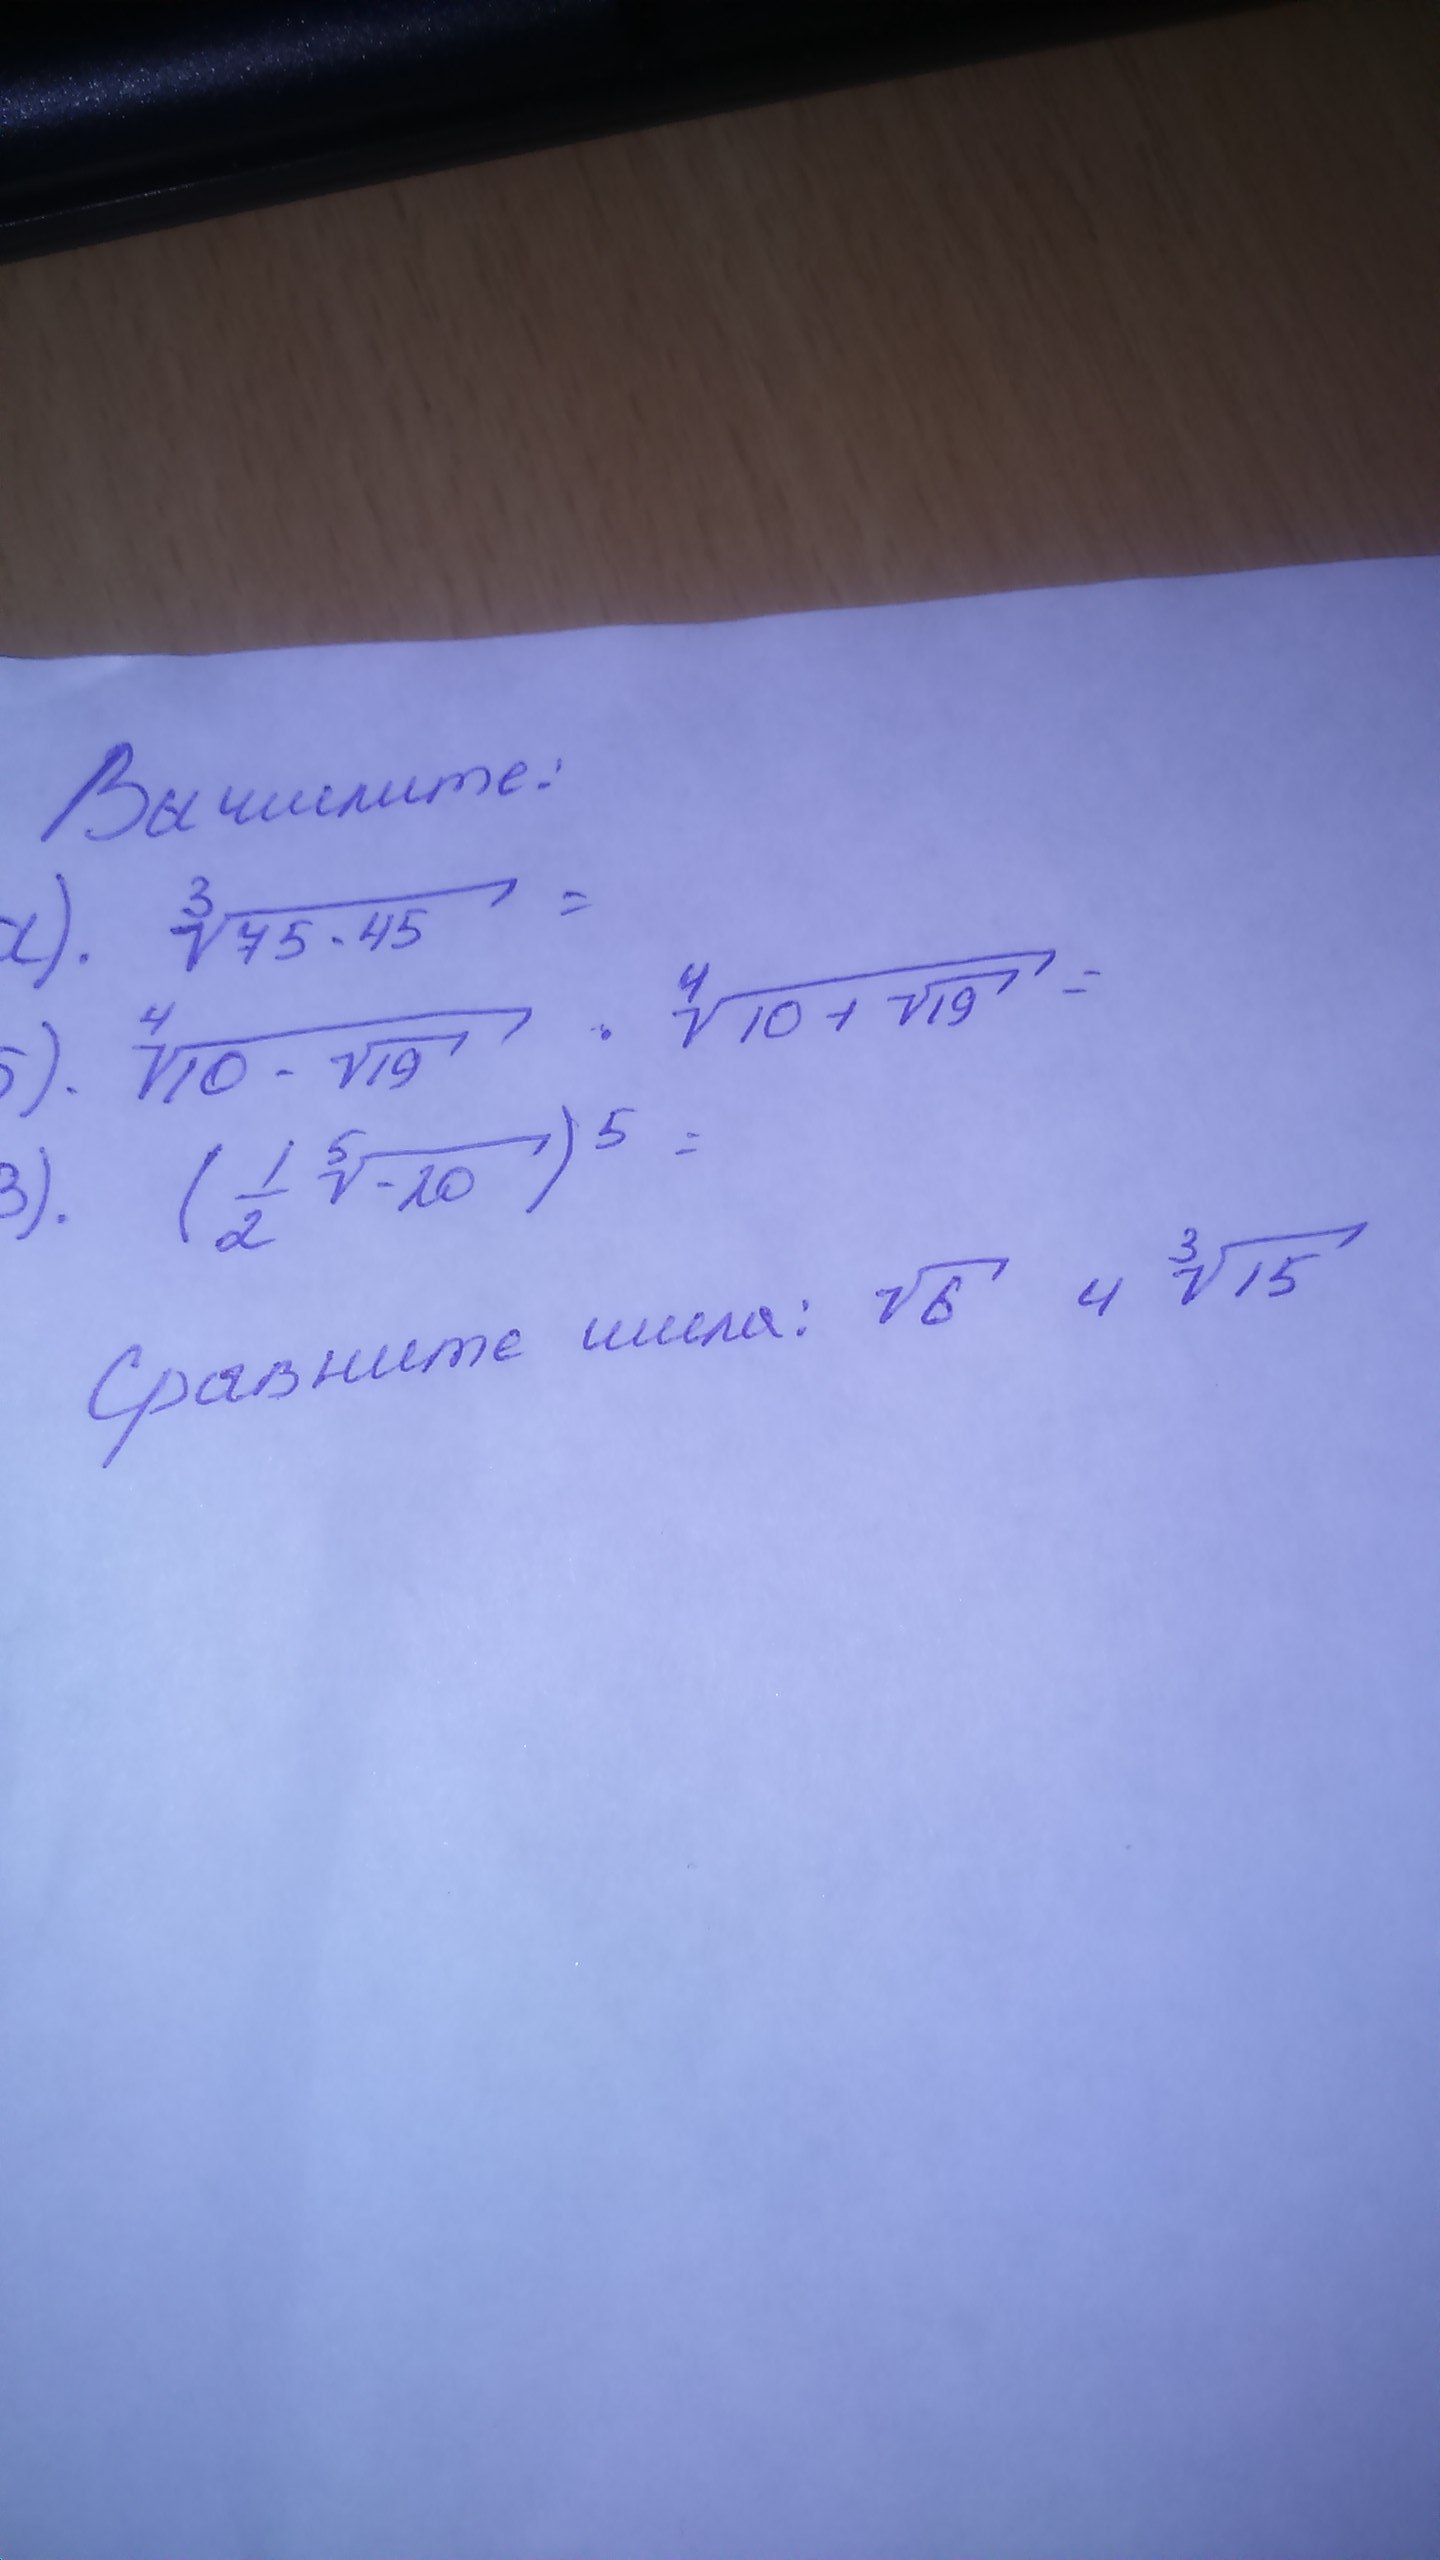 Вычислите:
а). ∛(75·45) =
б). ∜(10 - √19) · ∜(10 + √19) =
в). (1/2 ⁵√-20)⁵ =
Сравните числа: √6 и ∛15